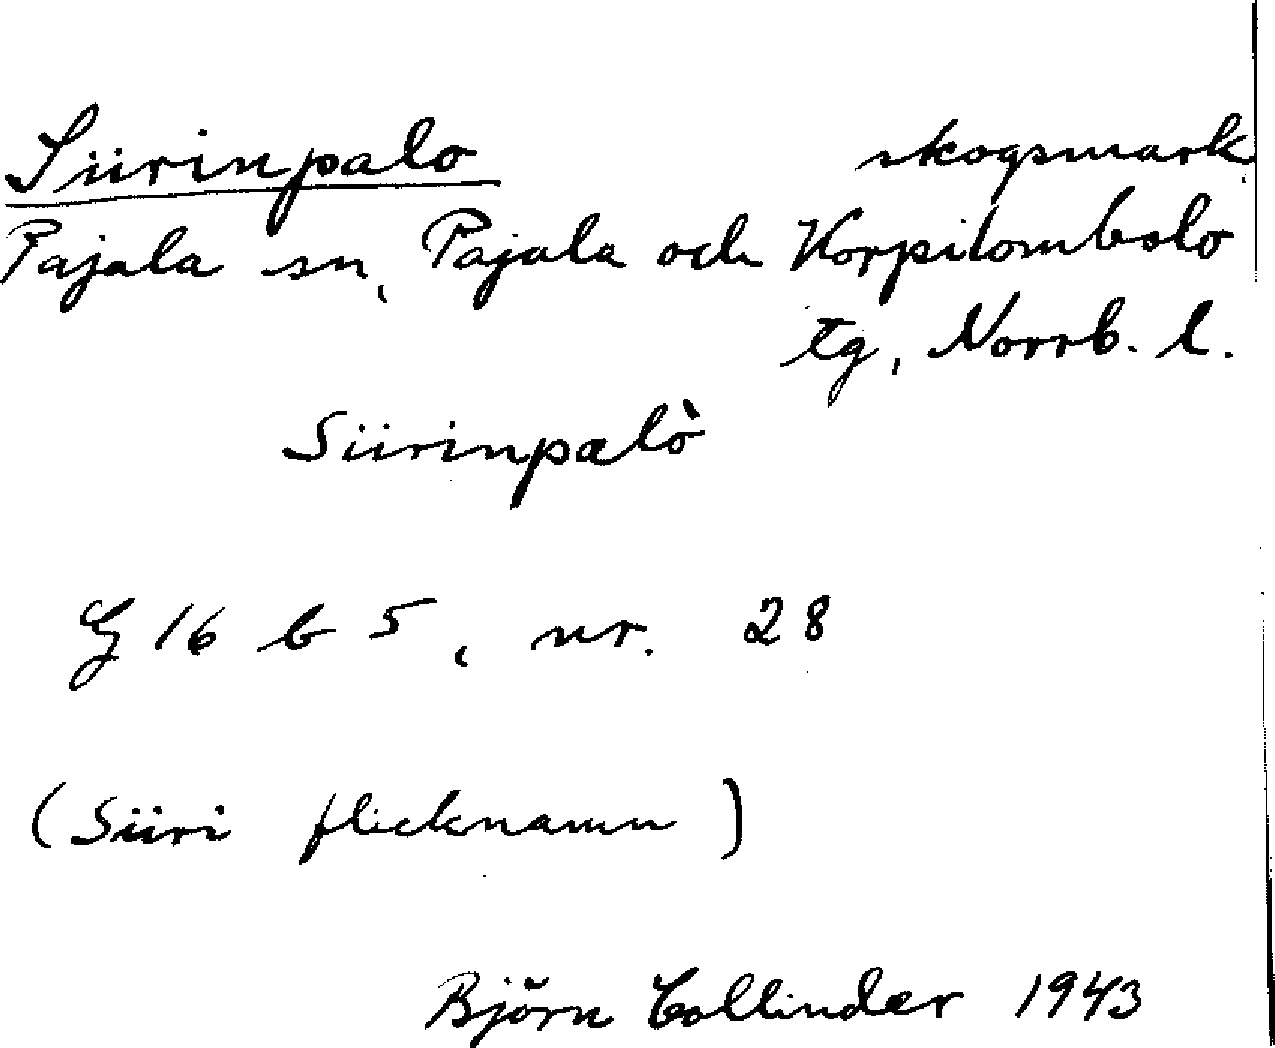 Siirinpalo skogsmark
Pajala sn, Pajala och Korpilombolo
tg, Norrb. l.
Siirinpalò
G 16 b 5, nr. 28
(Siiri flicknamn)
Björn Collinder 1943